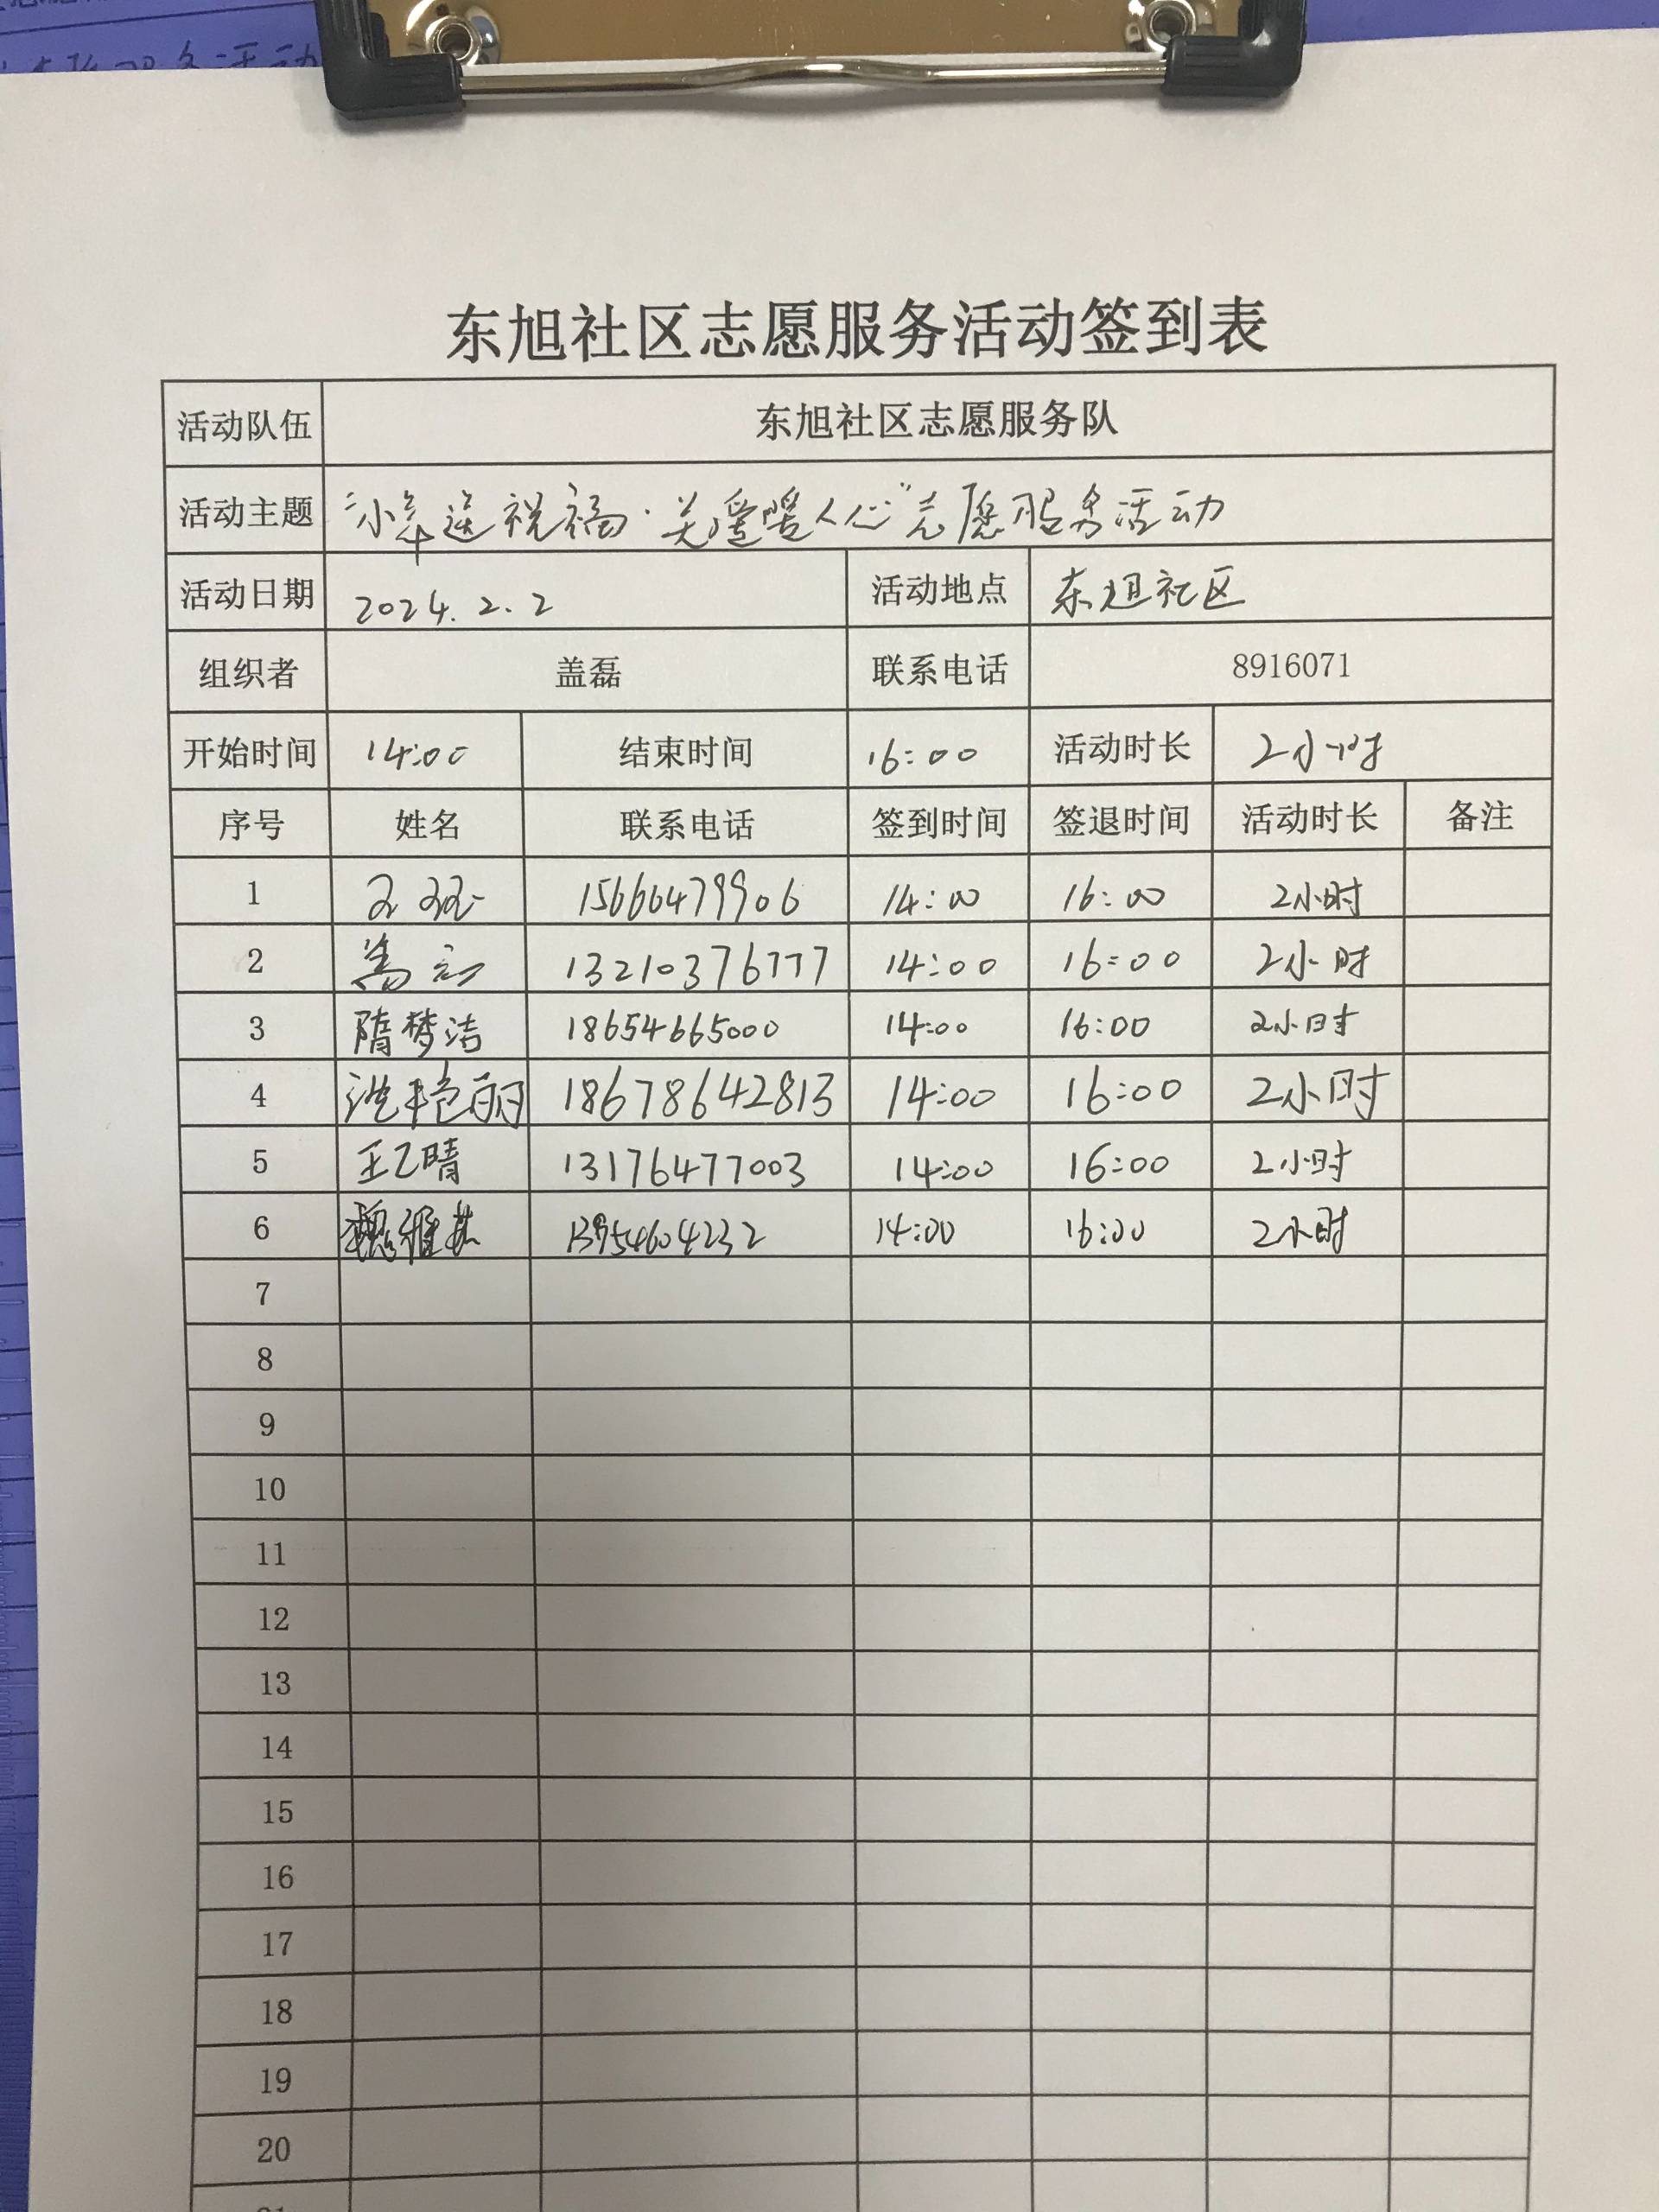 东旭社区志愿服务活动签到表
活动队伍 东旭社区志愿服务队
活动主题 “小年送祝福·关爱暖人心”志愿服务活动
活动日期 2024.2.2 活动地点 东旭社区
组织者 盖磊 联系电话 8916071
开始时间 14:00 结束时间 16:00 活动时长 2小时
序号 姓名 联系电话 签到时间 签退时间 活动时长 备注
1 15666479906 14:00 16:00 2小时
2 13210376777 14:00 16:00 2小时
3 隋梦洁 18654665000 14:00 16:00 2小时
4 艳丽 18678642813 14:00 16:00 2小时
5 王乙晴 13176477003 14:00 16:00 2小时
6 魏雅 13954604232 14:00 16:00 2小时
7
8
9
10
11
12
13
14
15
16
17
18
19
20